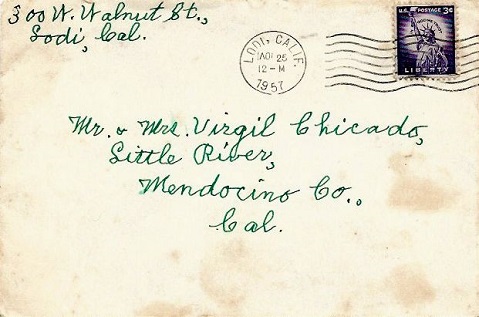 300 W. Walnut St.,
Lodi, Cal.
LODI, CALIF.
25
12 - M
1957
U.S. POSTAGE 3¢
LIBERTY
Mr. & Mrs. Virgil Chicado,
Little River,
Mendocino Co.,
Cal.